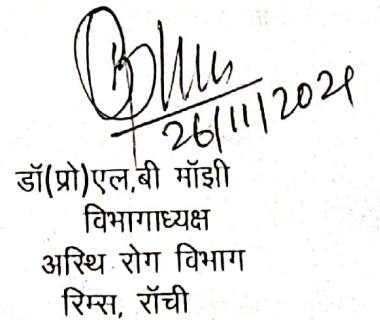 26/11/2024
डॉ(प्रो)एल.बी मॉझी
विभागाध्यक्ष
अस्थि रोग विभाग
रिम्स, रॉची